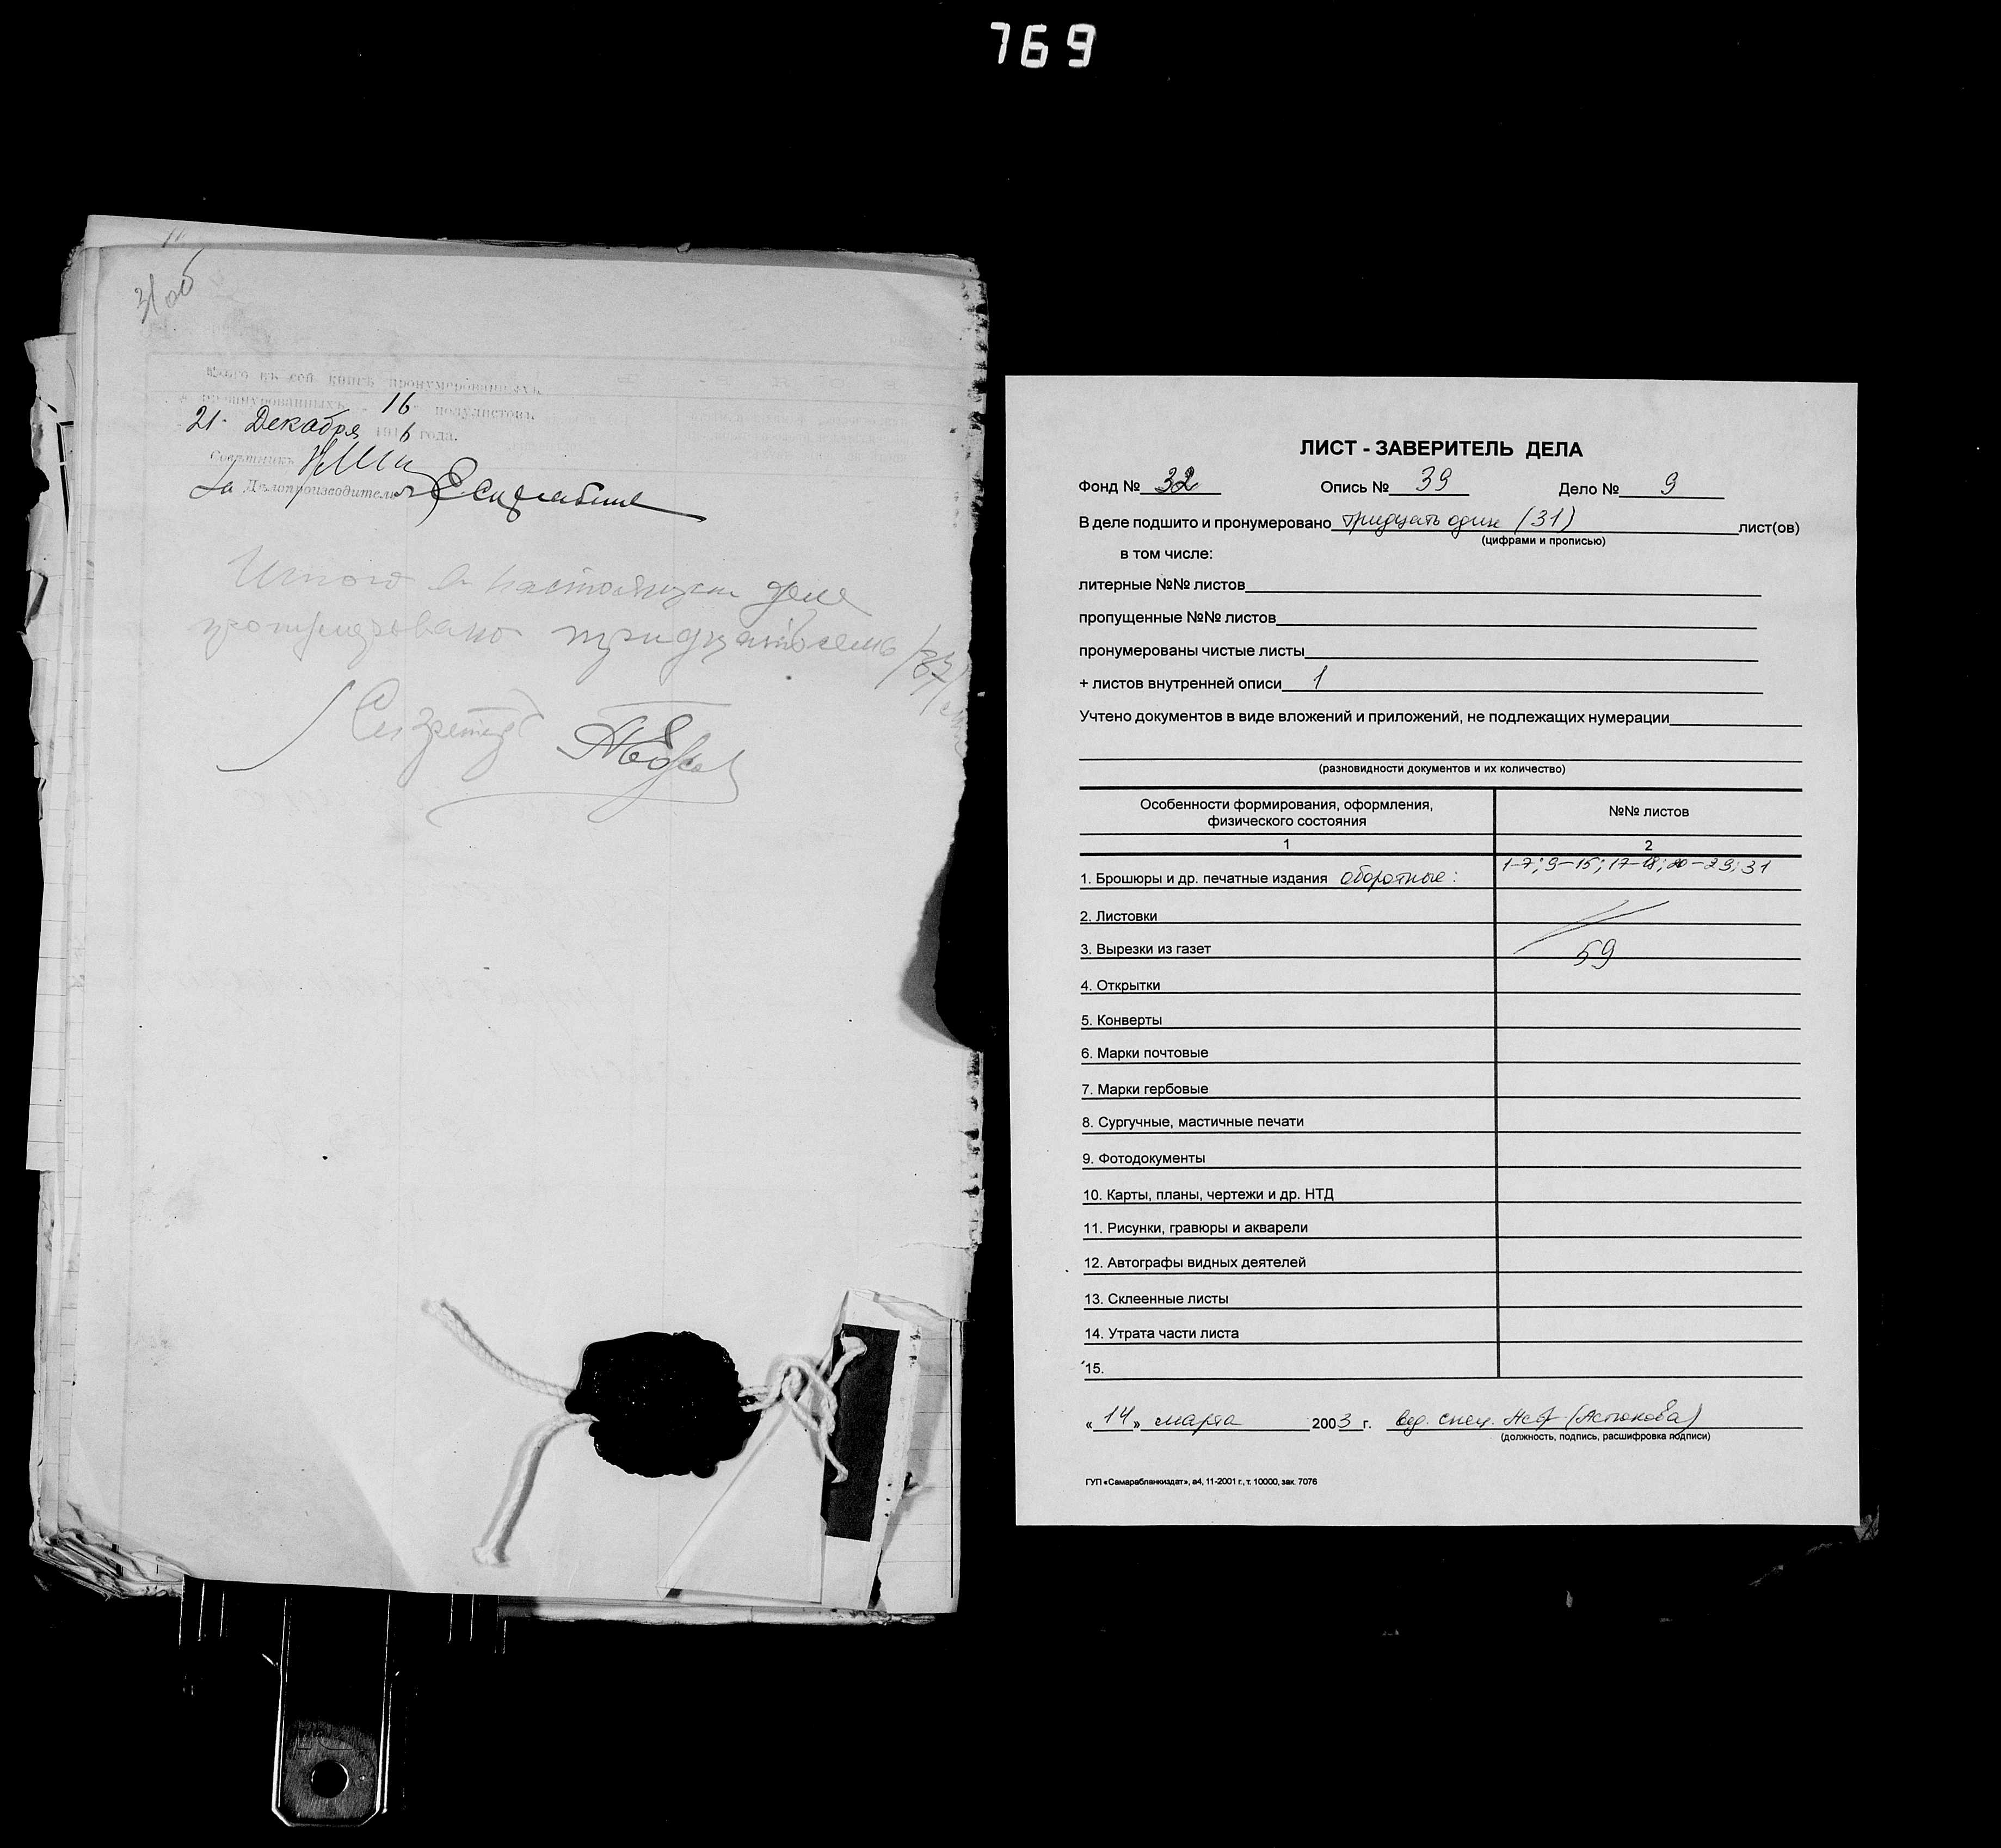 769
31об
Всего въ сей книгѣ пронумерованныхъ
и прошнурованныхъ 16 полулистовъ
21 Декабря 1916 года.
Совѣтникъ
За Дѣлопроизводителя
Итого в настоящем деле
пронумеровано тридцать семь /37/
Секретарь
ЛИСТ - ЗАВЕРИТЕЛЬ ДЕЛА
Фонд № 32 Опись № 39 Дело № 9
В деле подшито и пронумеровано тридцать один (31) лист(ов)
(цифрами и прописью)
в том числе:
литерные №№ листов
пропущенные №№ листов
пронумерованы чистые листы
+ листов внутренней описи 1
Учтено документов в виде вложений и приложений, не подлежащих нумерации
(разновидности документов и их количество)
Особенности формирования, оформления, физического состояния №№ листов
1 2
1. Брошюры и др. печатные издания оборотные: 1-7; 9-15; 17-18; 20-29; 31
2. Листовки
3. Вырезки из газет 59
4. Открытки
5. Конверты
6. Марки почтовые
7. Марки гербовые
8. Сургучные, мастичные печати
9. Фотодокументы
10. Карты, планы, чертежи и др. НТД
11. Рисунки, гравюры и акварели
12. Автографы видных деятелей
13. Склеенные листы
14. Утрата части листа
15.
«14» марта 2003 г. вед. спец. (Астюкова)
(должность, подпись, расшифровка подписи)
ГУП «Самарабланкиздат», а4, 11-2001 г., т. 10000, зак. 7076